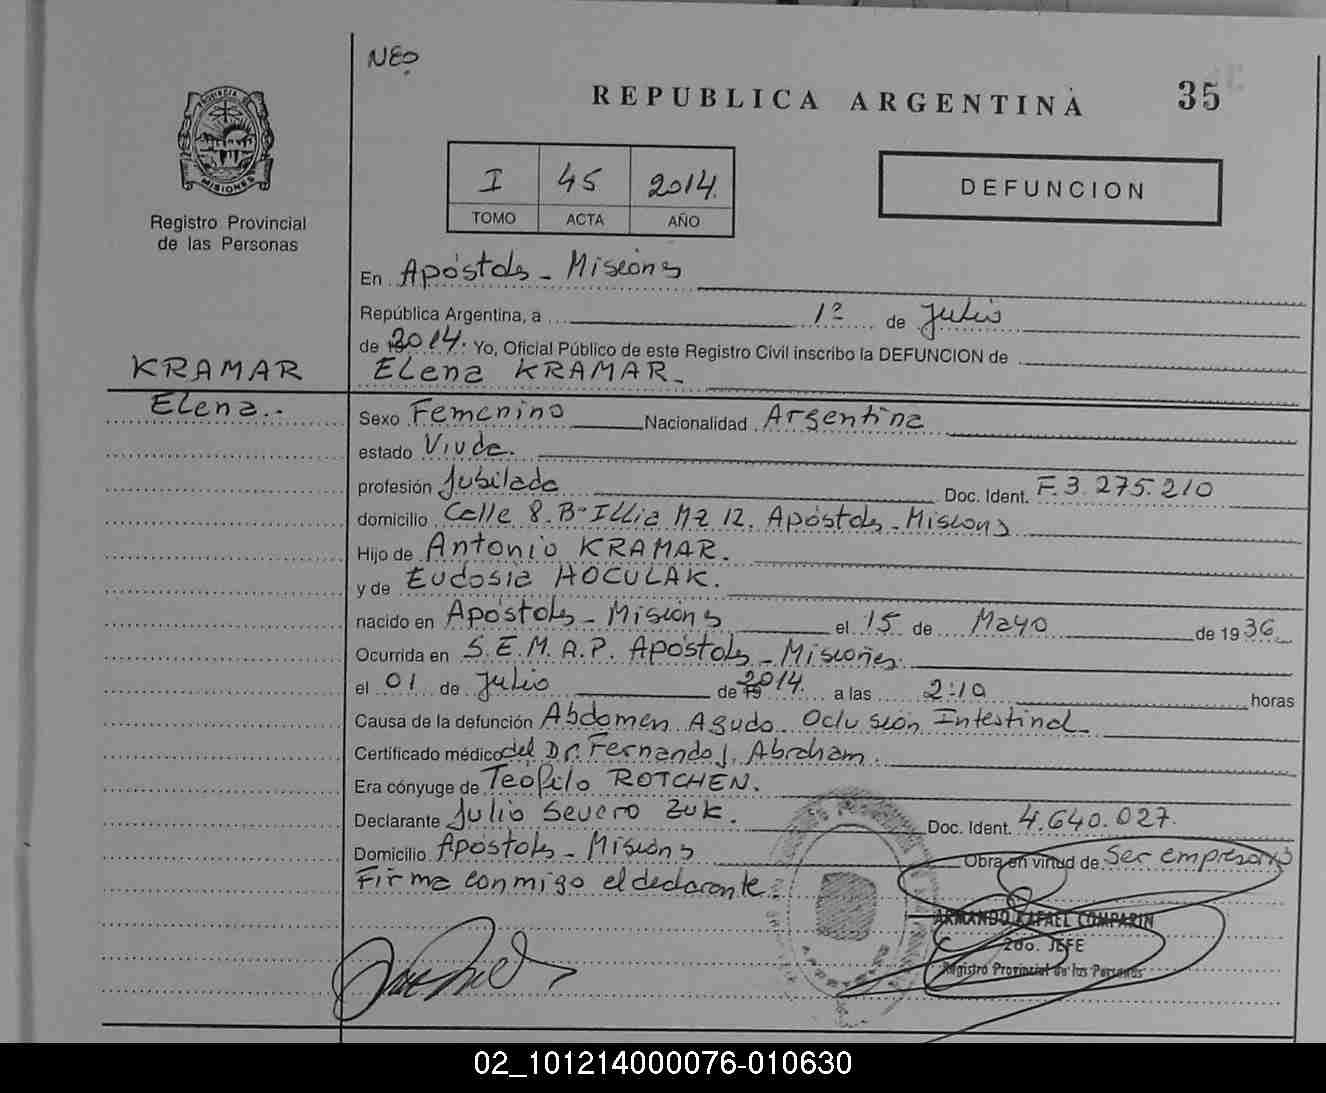 NEO
REPUBLICA ARGENTINA
35
PROVINCIA DE
MISIONES
Registro Provincial
de las Personas
I 45 2014
TOMO ACTA AÑO
DEFUNCION
En Apóstoles - Misiones
República Argentina, a 1º de Julio
de 2014. Yo, Oficial Público de este Registro Civil inscribo la DEFUNCION de
KRAMAR
Elena KRAMAR.
Elena..
Sexo Femenino Nacionalidad Argentina
estado Viuda.
profesión Jubilada Doc. Ident. F. 3.275.210
domicilio Calle 8. Bº Illia Mz 12. Apóstoles - Misiones
Hijo de Antonio KRAMAR.
y de Eudosia HOCULAK.
nacido en Apóstoles - Misiones el 15 de Mayo de 1936
Ocurrida en S.E.M.A.P. Apóstoles - Misiones.
el 01 de Julio de 2014. a las 2:10 horas
Causa de la defunción Abdomen Agudo. Oclusión Intestinal.
Certificado médico del Dr. Fernando J. Abraham.
Era cónyuge de Teófilo ROTCHEN.
Declarante Julio Severo ZUK. Doc. Ident. 4.640.027.
Domicilio Apóstoles - Misiones Obra en virtud de Ser empresario
Firma conmigo el declarante.
ARMANDO RAFAEL COMPARIN
2do. JEFE
Registro Provincial de las Personas
02_101214000076-010630